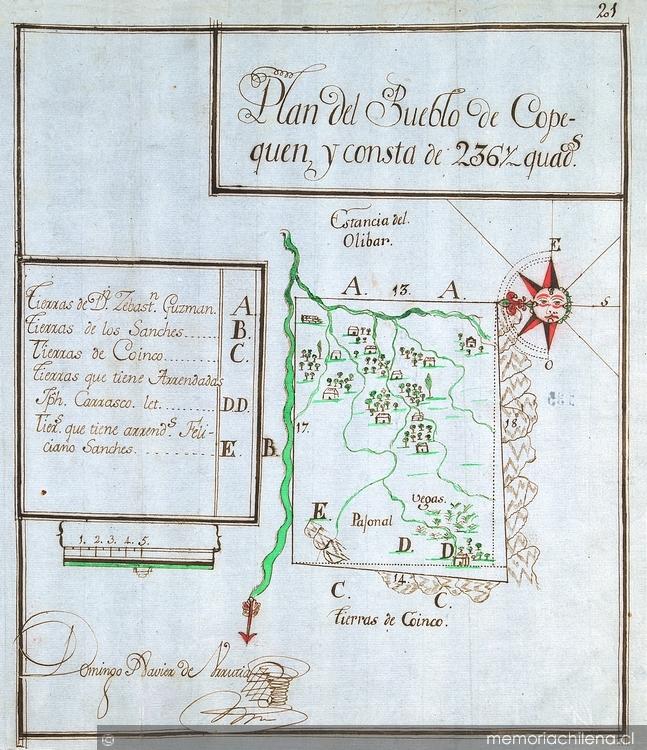 21
Plan del Pueblo de Cope-
quen, y consta de 236½ quads.
Estancia del
Olibar.
E
S
O
A. 13. A.
Tierras de Dn. Zebastn. Guzman. A.
Tierras de los Sanches....... B
Tierras de Coinco......... C.
Tierras que tiene Arrendadas
Jph. Carrasco. let. ......... D.D.
Tiers. que tiene arrends. Feli-
ciano Sanches. ......... E.
B.
17.
18
E.
Pajonal
Vegas.
D. D
14.
C. C.
Tierras de Coinco.
1. 2. 3. 4. 5.
Domingo Xavier de Urrutia
© memoriachilena.cl